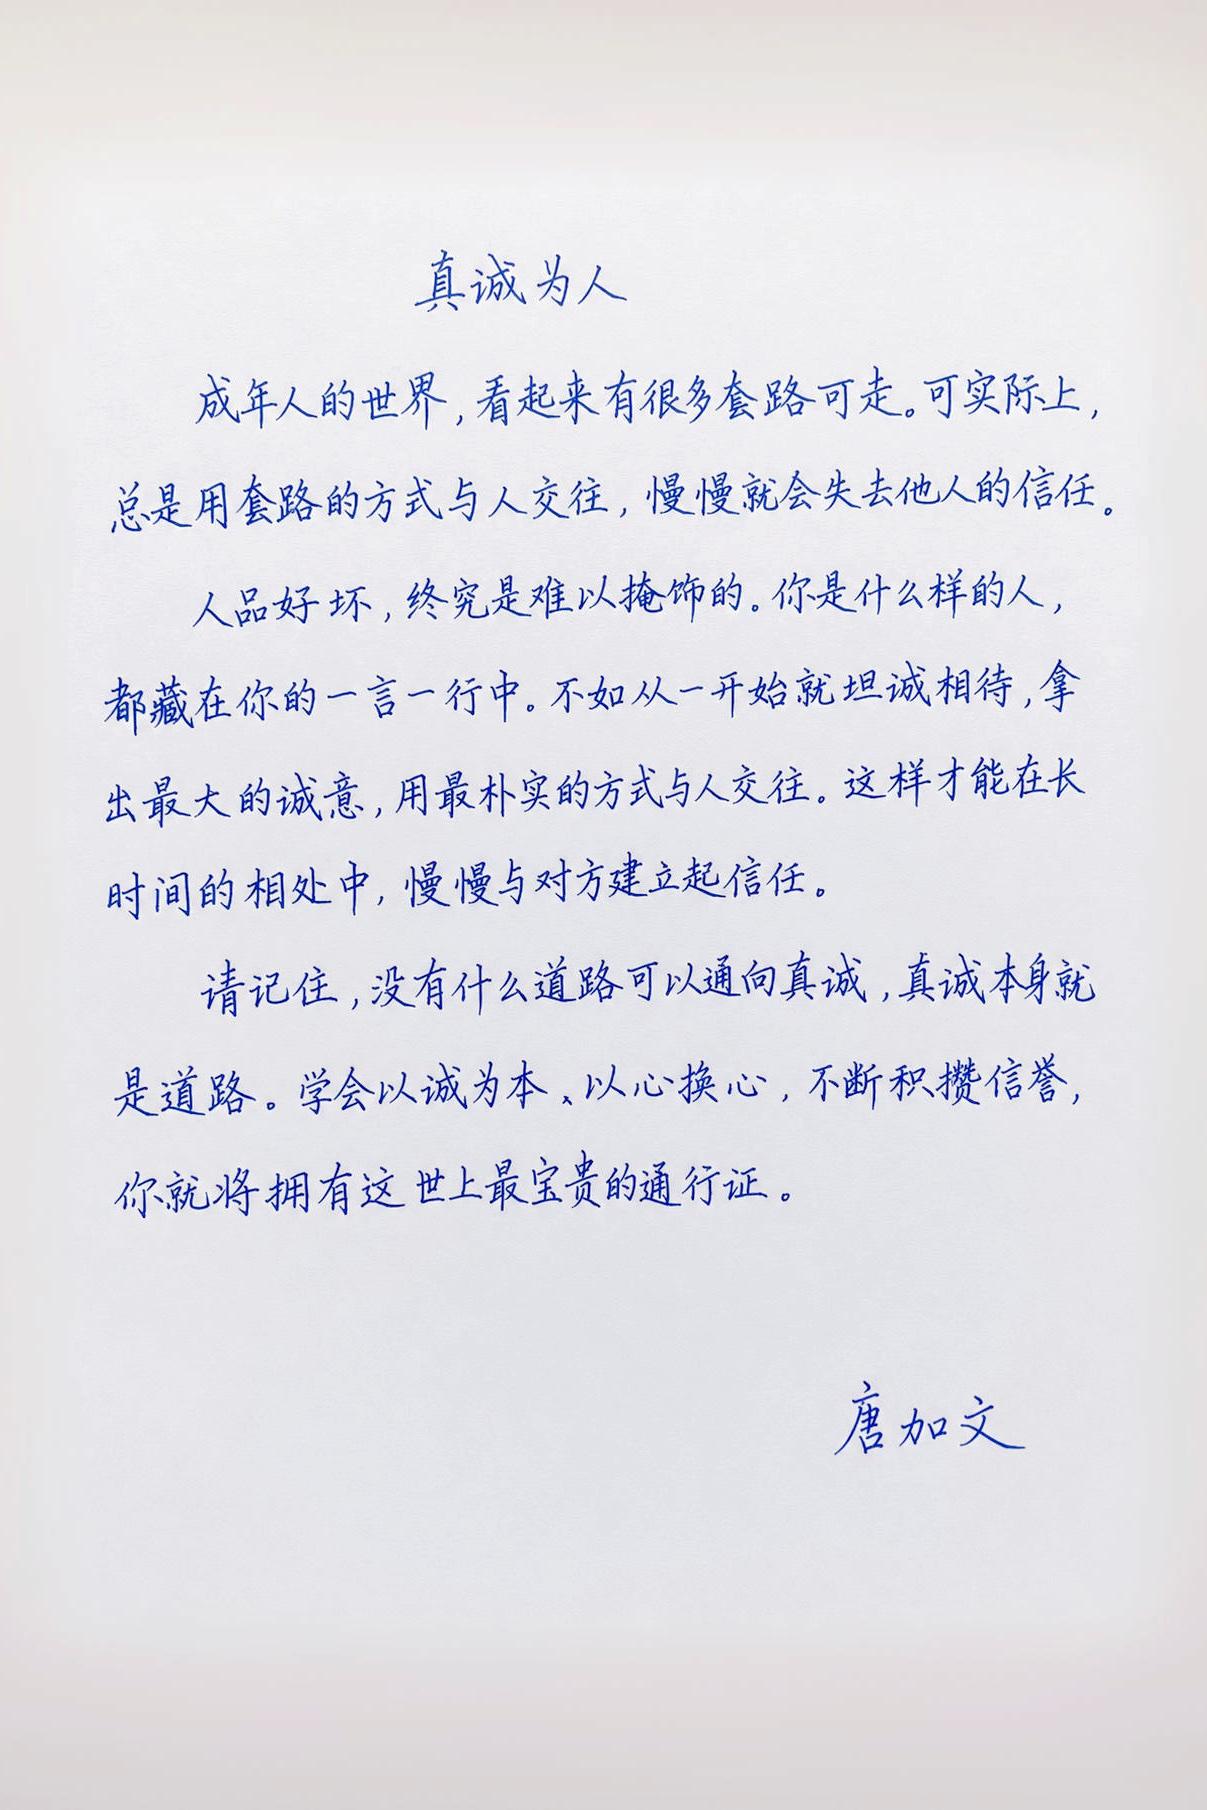 真诚为人
成年人的世界,看起来有很多套路可走。可实际上,
总是用套路的方式与人交往,慢慢就会失去他人的信任。
人品好坏,终究是难以掩饰的。你是什么样的人,
都藏在你的一言一行中。不如从一开始就坦诚相待,拿
出最大的诚意,用最朴实的方式与人交往。这样才能在长
时间的相处中,慢慢与对方建立起信任。
请记住,没有什么道路可以通向真诚,真诚本身就
是道路。学会以诚为本、以心换心,不断积攒信誉,
你就将拥有这世上最宝贵的通行证。
唐加文